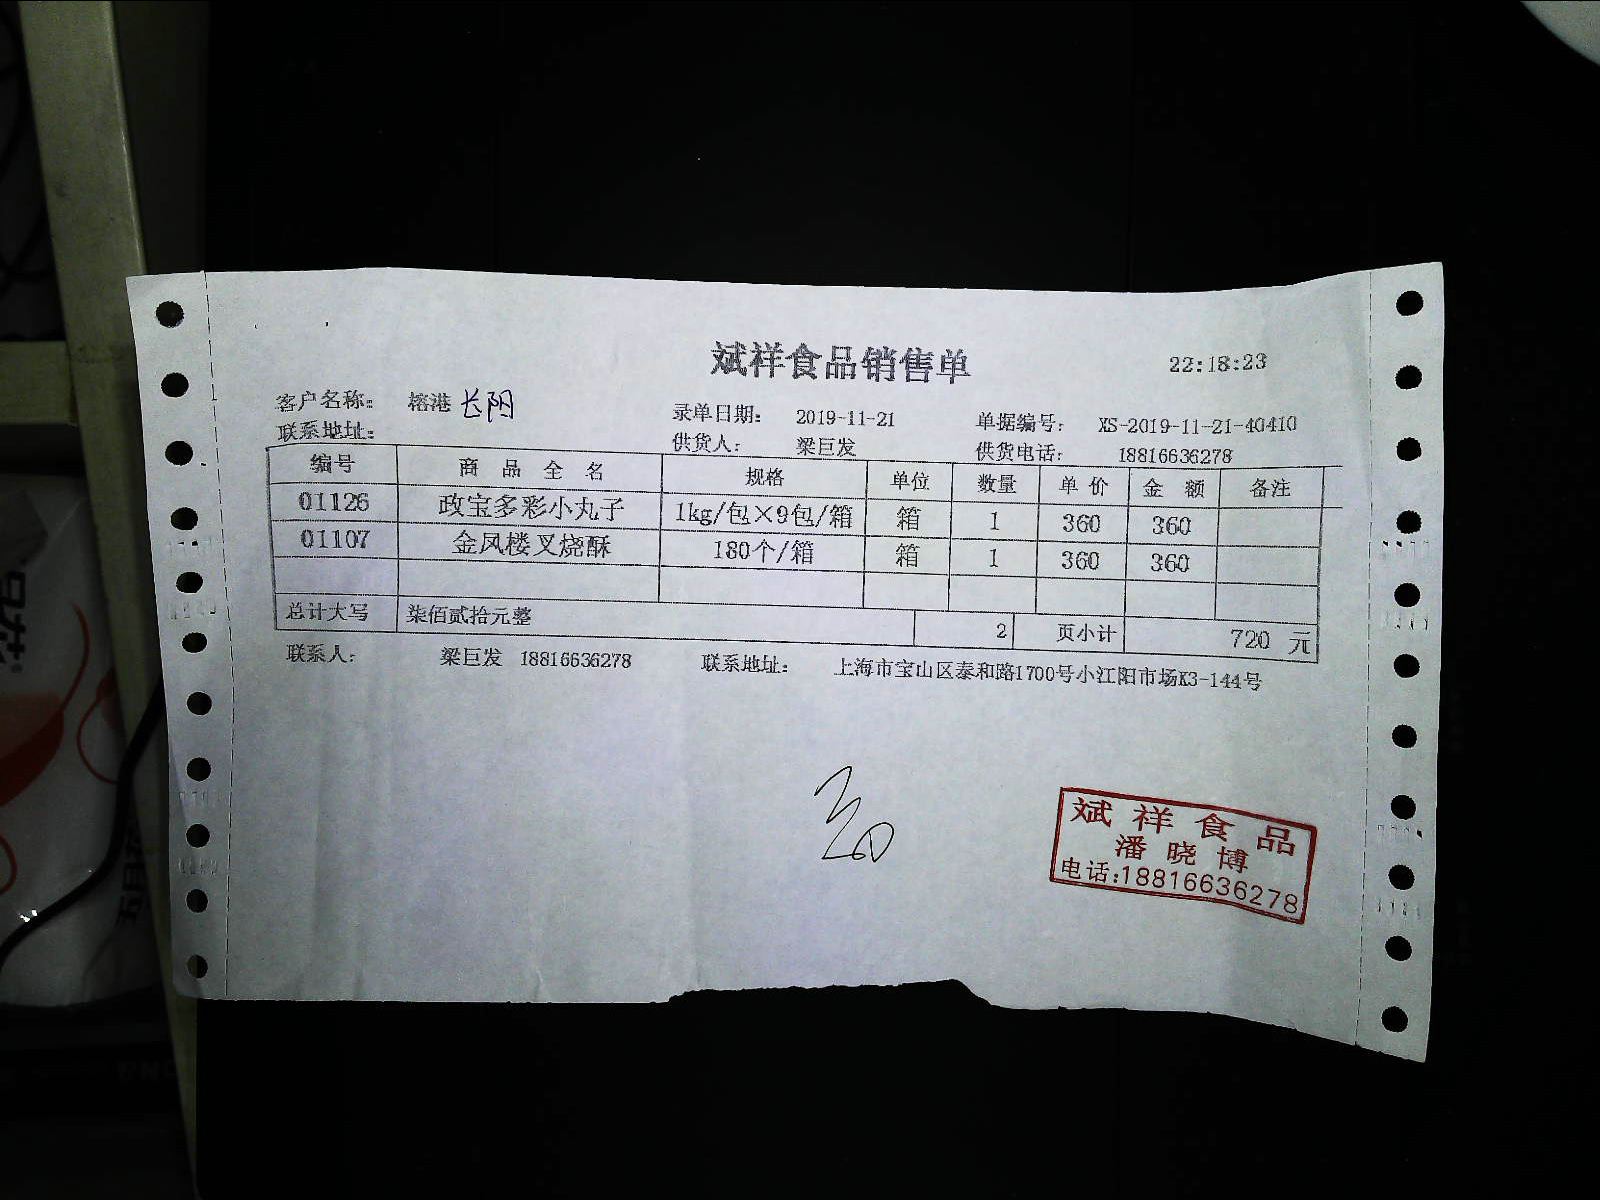 斌祥食品销售单 22:18:23
客户名称: 榕港 长阳 录单日期: 2019-11-21 单据编号: XS-2019-11-21-40410
联系地址: 供货人: 梁巨发 供货电话: 18816636278
编号 商品全名 规格 单位 数量 单价 金额 备注
01126 政宝多彩小丸子 1kg/包×9包/箱 箱 1 360 360
01107 金凤楼叉烧酥 180个/箱 箱 1 360 360
总计大写 柒佰贰拾元整 2 页小计 720 元
联系人: 梁巨发 18816636278 联系地址: 上海市宝山区泰和路1700号小江阳市场K3-144号
斌祥食品
潘晓博
电话:18816636278